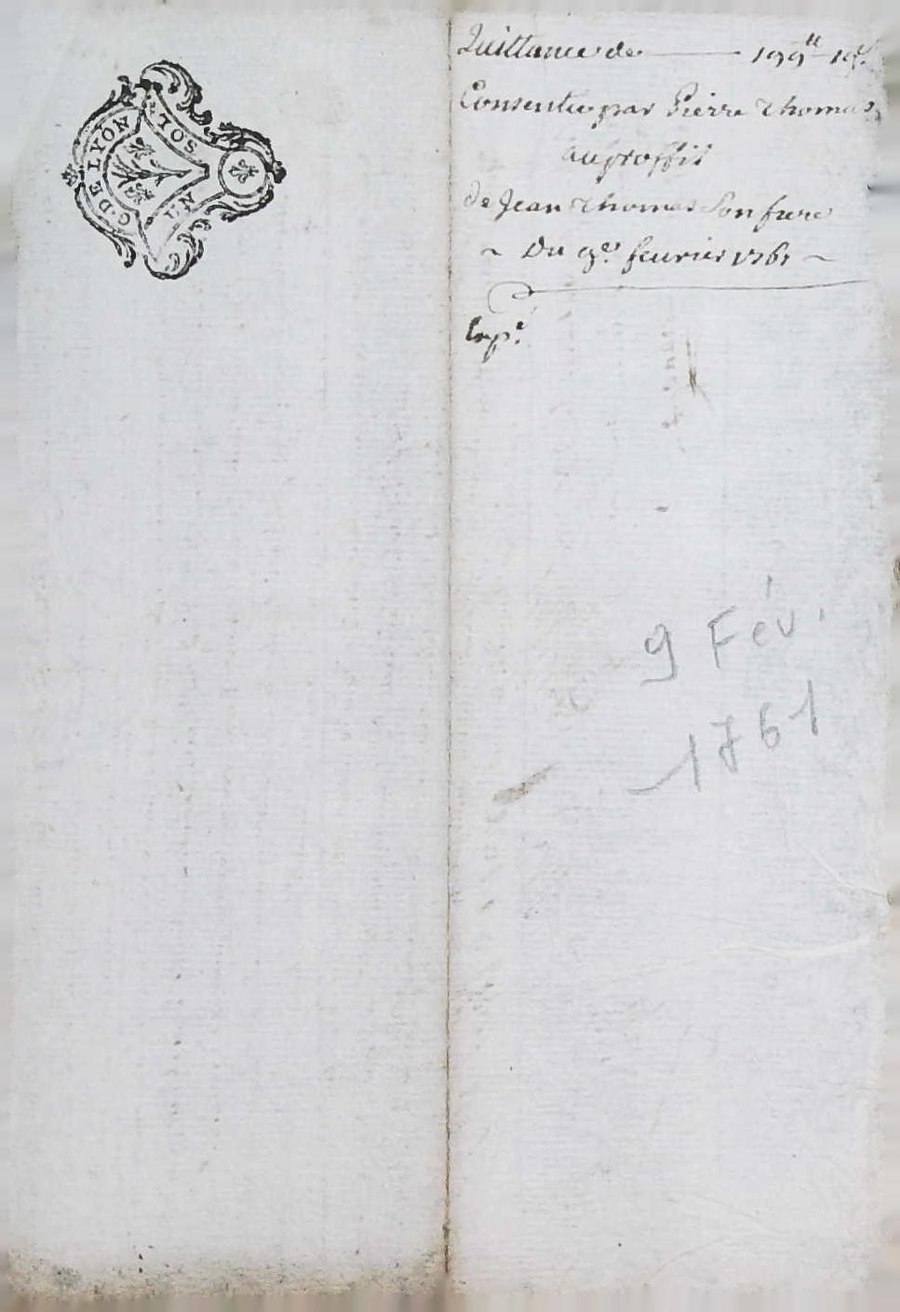 G. DE LYON
UN SOL
Quittance de 199ll 19s
Consentie par Pierre Thomas
au proffit
de Jean Thomas Son frere
~ Du 9e. fevrier 1761 ~
Exp.e
9 Fév.
1761